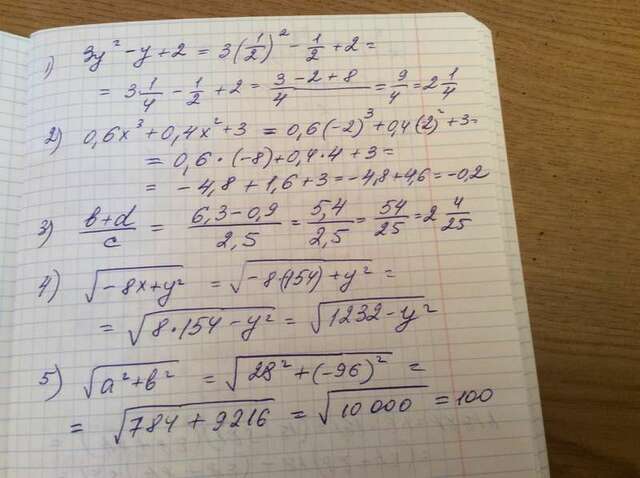 1) 3y² - y + 2 = 3(1/2)² - 1/2 + 2 =
= 3·1/4 - 1/2 + 2 = (3 - 2 + 8)/4 = 9/4 = 2 1/4
2) 0,6x³ + 0,4x² + 3 = 0,6(-2)³ + 0,4(2)² + 3 =
= 0,6 · (-8) + 0,4 · 4 + 3 =
= -4,8 + 1,6 + 3 = -4,8 + 4,6 = -0,2
3) (b+d)/c = (6,3 - 0,9)/2,5 = 5,4/2,5 = 54/25 = 2 4/25
4) √(-8x + y²) = √(-8·(154) + y²) =
= √(8·154 - y²) = √(1232 - y²)
5) √(a² + b²) = √(28² + (-96)²) =
= √(784 + 9216) = √(10 000) = 100